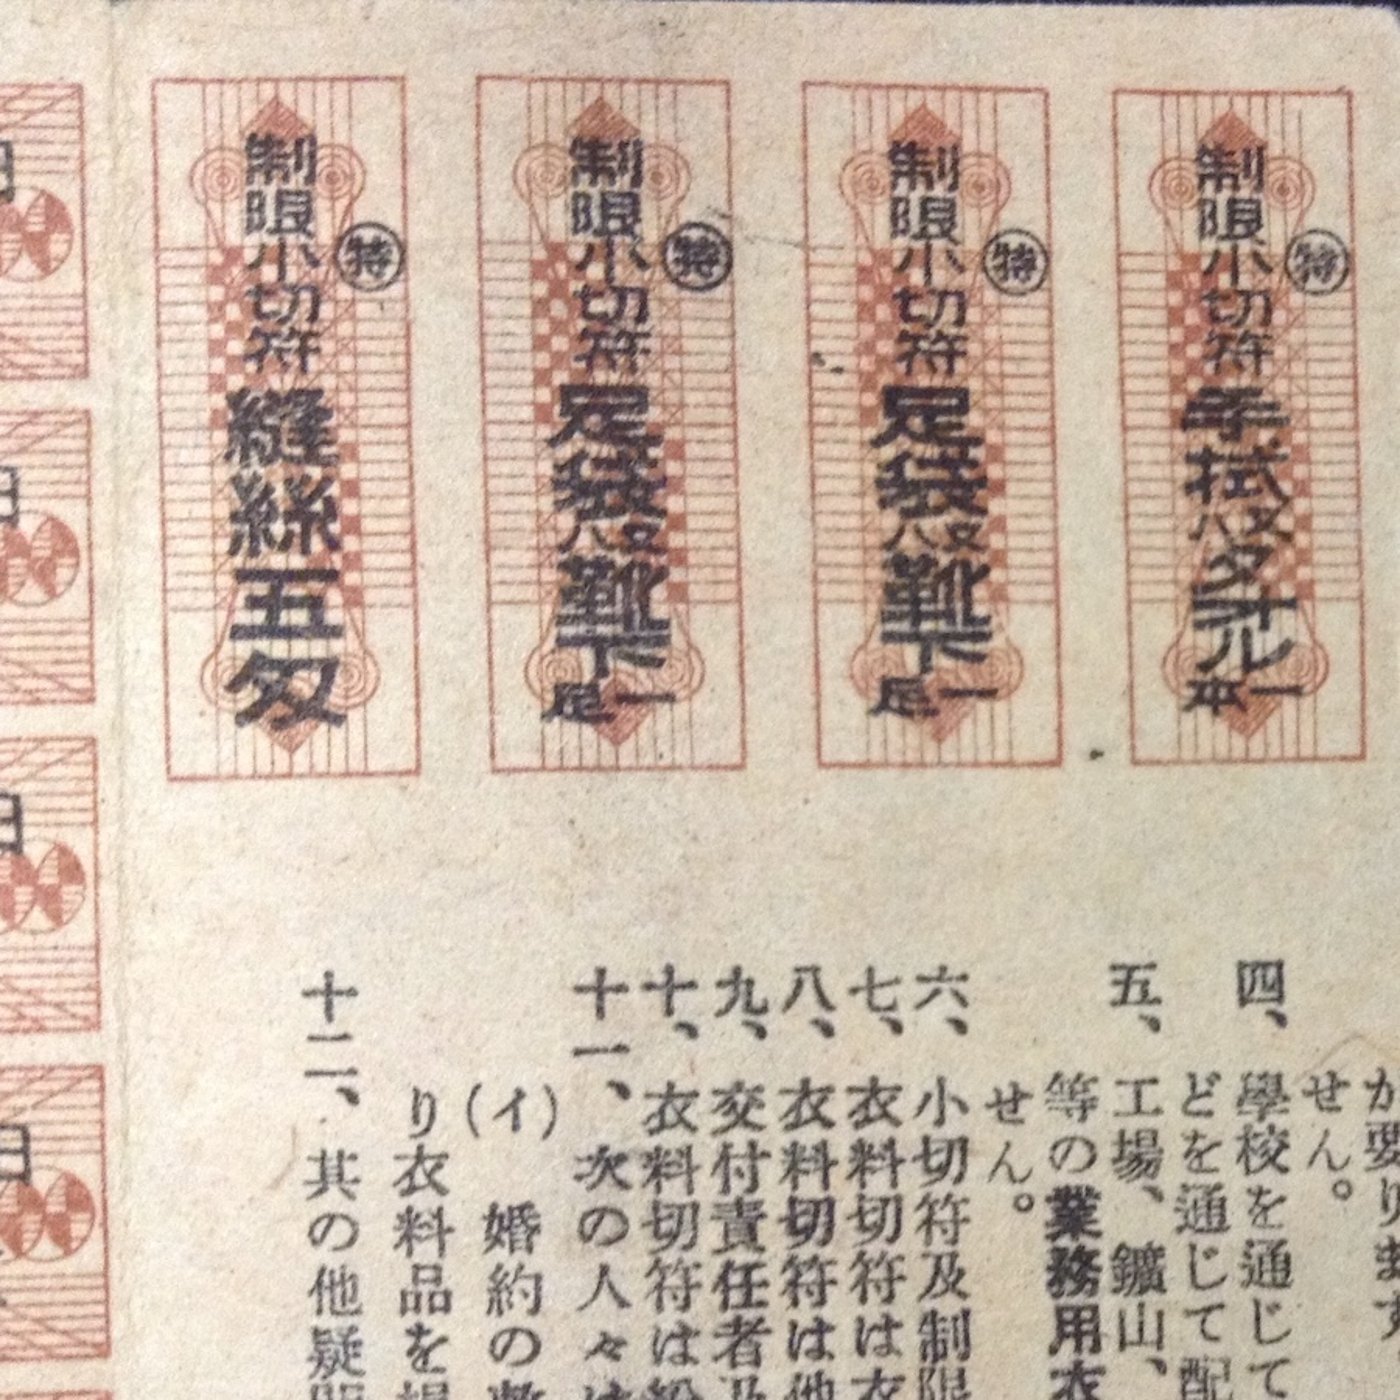 制限小切符 手拭又ハタオル一本
特
制限小切符 足袋又ハ靴下一足
特
制限小切符 足袋又ハ靴下一足
特
制限小切符 縫絲五匁
特
が要ります
せん。
四、學校を通じて
どを通じて配
五、工場、鑛山、
等の業務用衣
せん。
六、小切符及制限
七、衣料切符は衣
八、衣料切符は他
九、交付責任者及
十、衣料切符は紛
十一、次の人々は
(イ) 婚約の整
り衣料品を
十二、其の他疑問